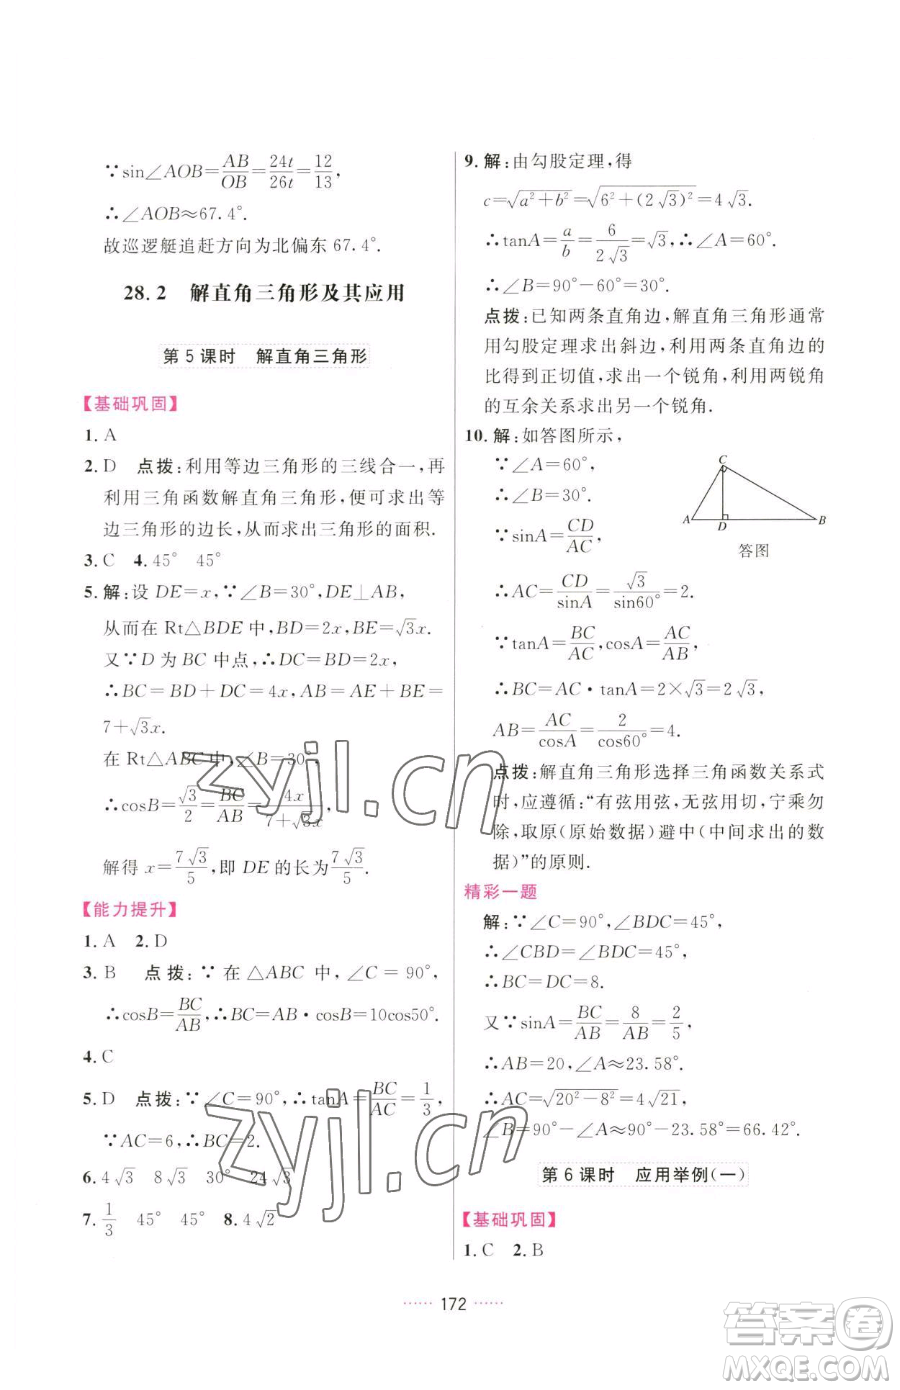 ∵sin∠AOB=AB/OB=24t/26t=12/13,
∴∠AOB≈67.4°.
故巡逻艇追赶方向为北偏东 67.4°.
28.2 解直角三角形及其应用
第 5 课时 解直角三角形
【基础巩固】
1. A
2. D 点拨:利用等边三角形的三线合一,再
利用三角函数解直角三角形,便可求出等
边三角形的边长,从而求出三角形的面积.
3. C 4. 45° 45°
5. 解:设 DE=x,∵∠B=30°,DE⊥AB,
从而在 Rt△BDE 中,BD=2x,BE=√3x.
又∵D 为 BC 中点,∴DC=BD=2x,
∴BC=BD+DC=4x,AB=AE+BE=
7+√3x.
在 Rt△ABC 中,∠B=30°,
∴cosB=√3/2=BC/AB=4x/(7+√3x),
解得 x=7√3/5,即 DE 的长为7√3/5.
【能力提升】
1. A 2. D
3. B 点拨:∵在△ABC 中,∠C=90°,
∴cosB=BC/AB,∴BC=AB·cosB=10cos50°.
4. C
5. D 点拨:∵∠C=90°,∴tanA=BC/AC=1/3,
∵AC=6,∴BC=2.
6. 4√3 8√3 30° 24√3
7. 1/3 45° 45° 8. 4√2
9. 解:由勾股定理,得
c=√(a²+b²)=√(6²+(2√3)²)=4√3.
∴tanA=a/b=6/(2√3)=√3,∴∠A=60°.
∴∠B=90°-60°=30°.
点拨:已知两条直角边,解直角三角形通常
用勾股定理求出斜边,利用两条直角边的
比得到正切值,求出一个锐角,利用两锐角
的互余关系求出另一个锐角.
10. 解:如答图所示,
∵∠A=60°,
∴∠B=30°.
∵sinA=CD/AC,
∴AC=CD/sinA=√3/sin60°=2.
∵tanA=BC/AC,cosA=AC/AB,
∴BC=AC·tanA=2×√3=2√3,
AB=AC/cosA=2/cos60°=4.
C
A D B
答图
点拨:解直角三角形选择三角函数关系式
时,应遵循:“有弦用弦,无弦用切,宁乘勿
除,取原(原始数据)避中(中间求出的数
据)”的原则.
精彩一题
解:∵∠C=90°,∠BDC=45°,
∴∠CBD=∠BDC=45°,
∴BC=DC=8.
又∵sinA=BC/AB=8/AB=2/5,
∴AB=20,∠A≈23.58°.
∴AC=√(20²-8²)=4√21,
∠B=90°-∠A≈90°-23.58°=66.42°.
第 6 课时 应用举例(一)
【基础巩固】
1. C 2. B
······ 172 ······
zyjl.cn
zyjl.cn
答案圈
MXQE.COM